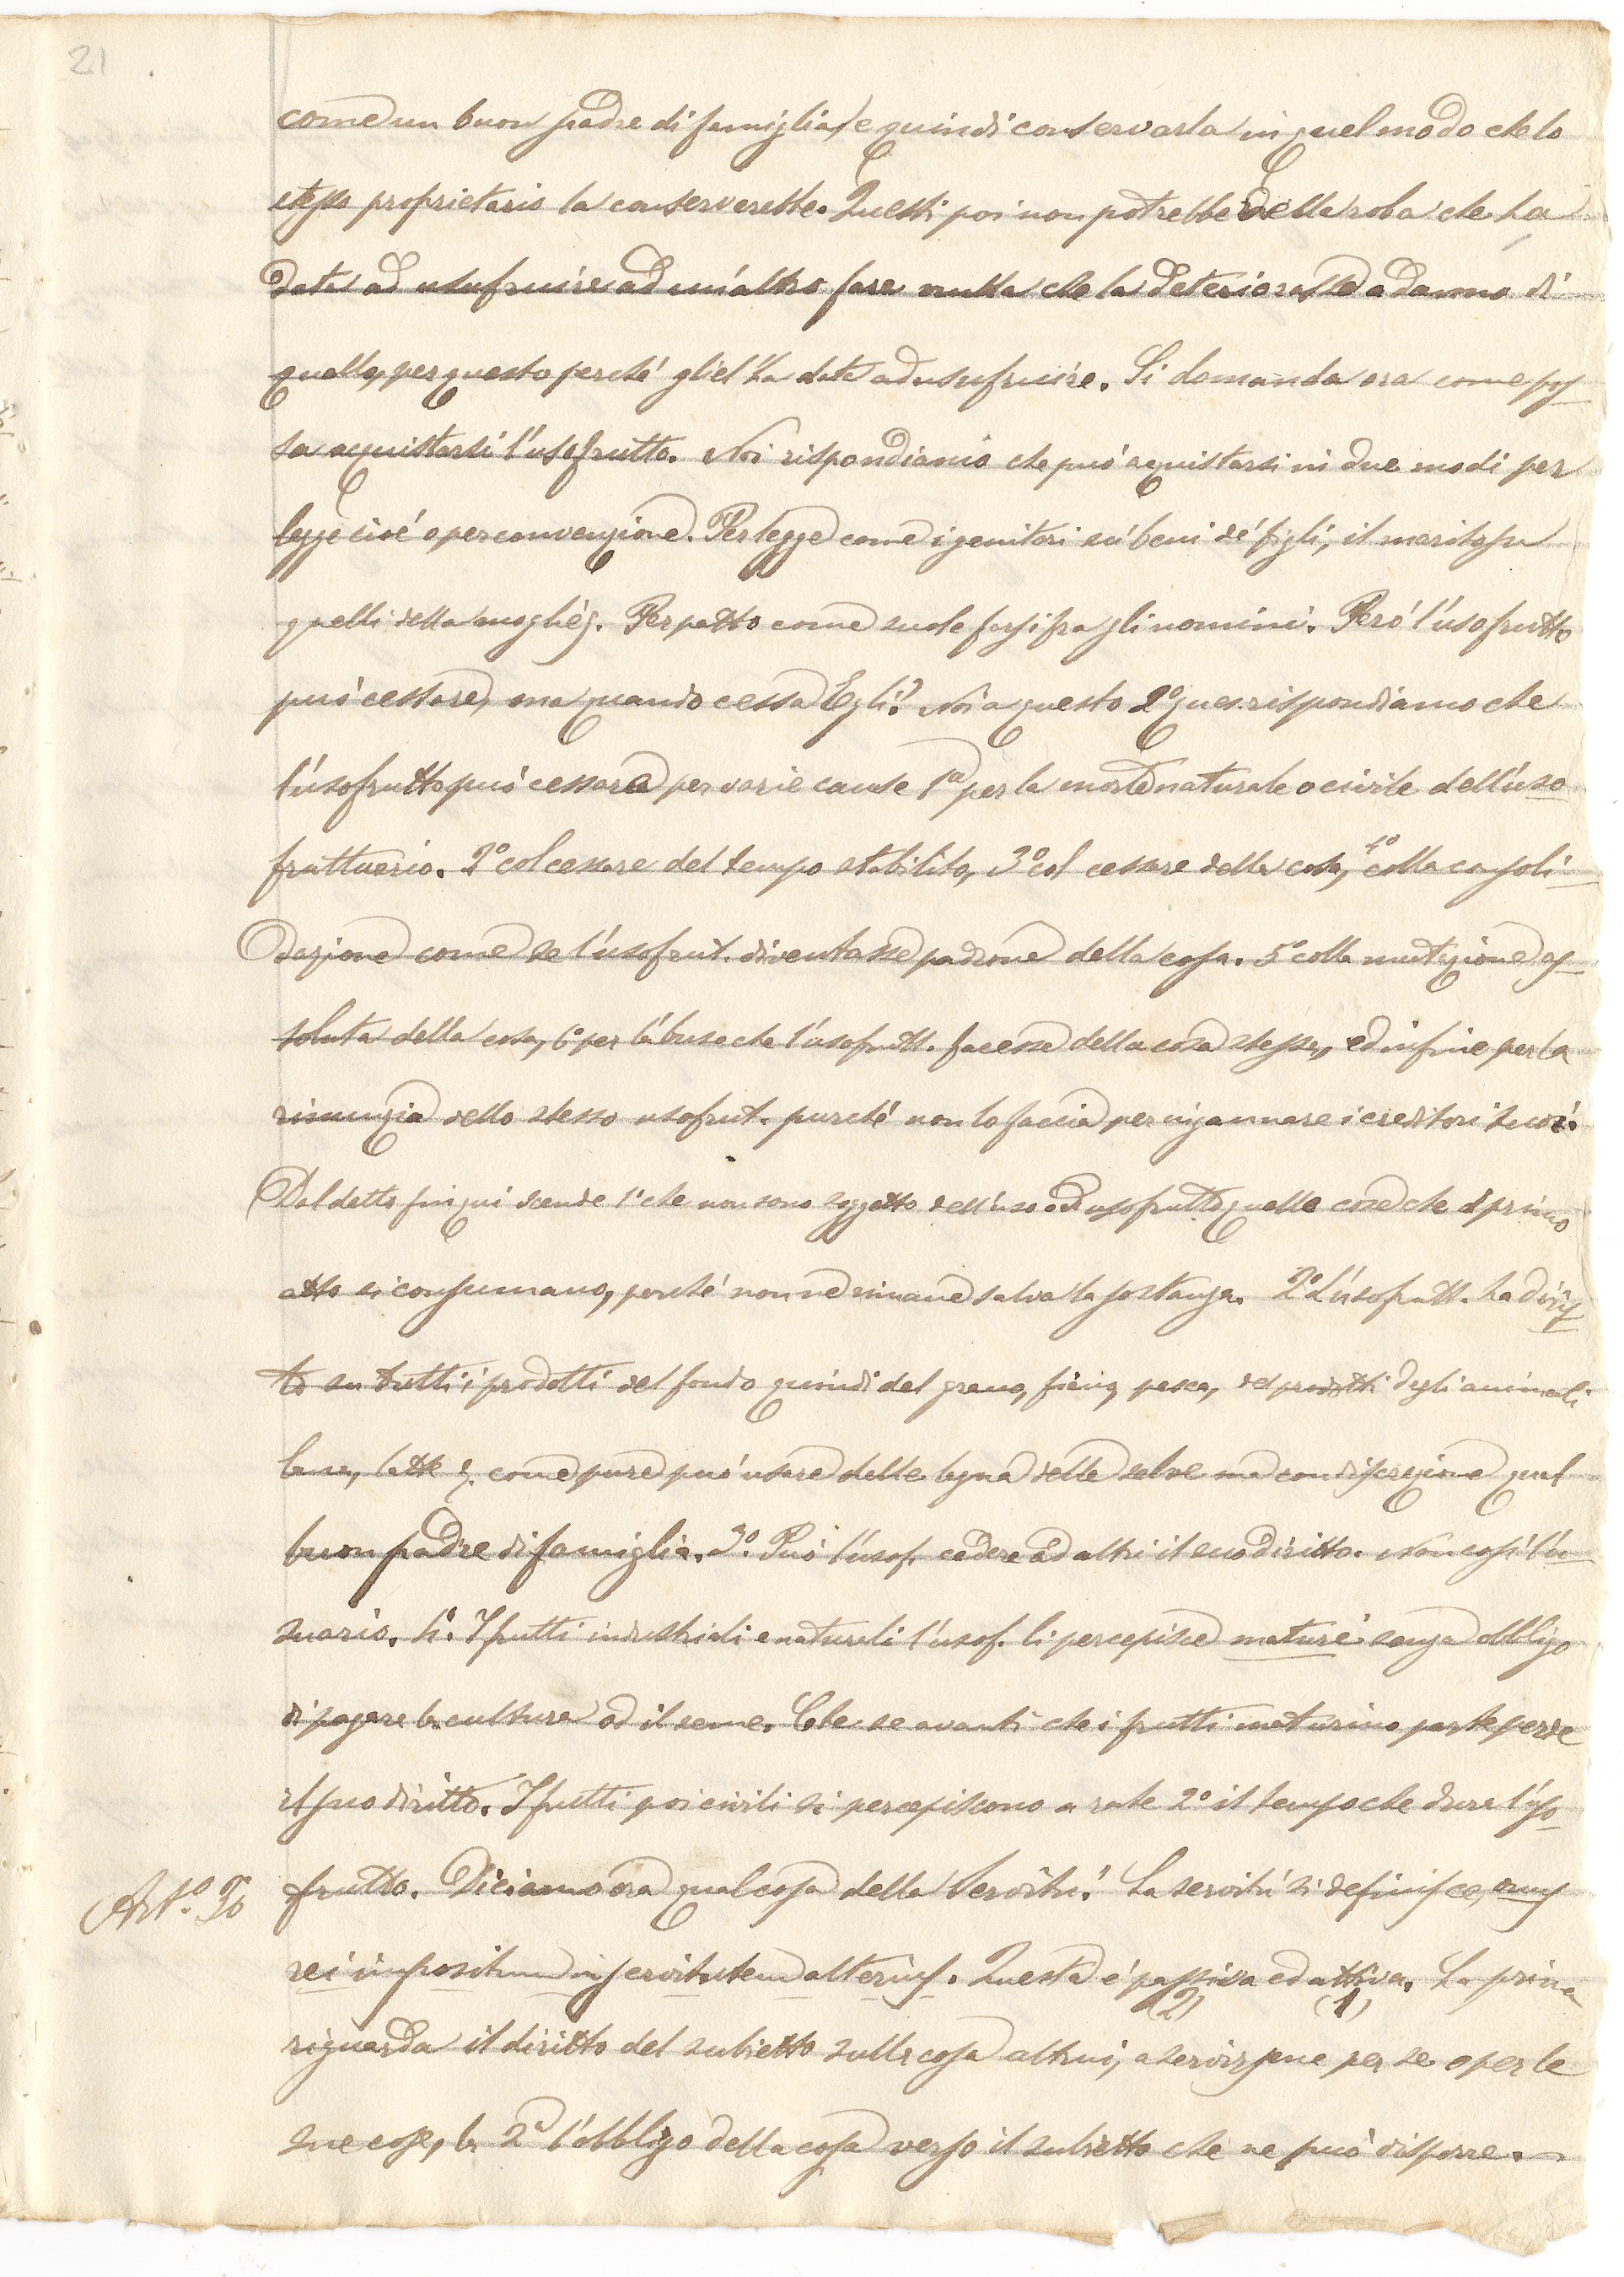 21
come un buon padre di famiglia, e quindi conservarla in quel modo che lo
stesso proprietario la conserverebbe. Questi poi non potrebbe della roba che ha
data ad usufruire ad un'altro fare nulla che la deteriorasse a danno di
quello, per questo perché gliel'ha data ad usufruire. Si domanda ora come pos
sa acquistarsi l'usofrutto. Noi rispondiamo che può acquistarsi in due modi per
legge cioé o per convenzione. Per legge come i genitori su' beni de' figli, il marito su
quelli della moglie &. Per patto come suole farsi fra gli uomini. Peró l'usofrutto
può cessare, ma quando cessa Egli? Noi a questo 2º ques. rispondiamo che
l'usofrutto può cessare per varie cause 1ª per la morte naturale o civile dell'uso
fruttuario. 2º col cessare del tempo stabilito, 3º col cessare della cosa, 4º colla consoli
dazione come se l'usofrut. diventasse padrone della cosa. 5º colla mutazione as
soluta della cosa, 6º per l'abuso che l'usofrutt. facesse della cosa stessa, ed infine per la
rinunzia dello stesso usofrut. purché non lo faccia per ingannare i creditori suoi.
Dal detto fin qui scende 1º che non sono soggetto dell'uso od usofrutto quelle cose che al primo
atto si consumano, perché non ne rimane salva la sostanza. 2º L'usofrutt. ha dirit
to su tutti i prodotti del fondo quindi del grano, fieno, pesca, del prodotti degli animali
lana, latte &. come pure può usare delle legna delle selve ma con discrezione qual
buon padre di famiglia. 3º. Può l'usof. cedere ad altri il suo diritto. Non così l'u
suario. 4º. I frutti industriali e naturali l'usof. li percepisce maturi senza obbligo
di pagare la cultura od il seme. Che se avanti che i frutti maturino parte perde
il suo diritto. I frutti poi civili si percepiscono a rate 2º il tempo che dura l'uso
frutto. Diciamo ora qualcosa della Servitù. La servitù si definisce, onus
Artº. 30
rei impositum in servitutem alterius. Questa é passiva ed attiva. La prima
(2) (1)
riguarda il diritto del subietto sulla cosa altrui, a servirsene per se o per le
sue cose, la 2ª l'obbligo della cosa verso il subietto che ne può disporre.